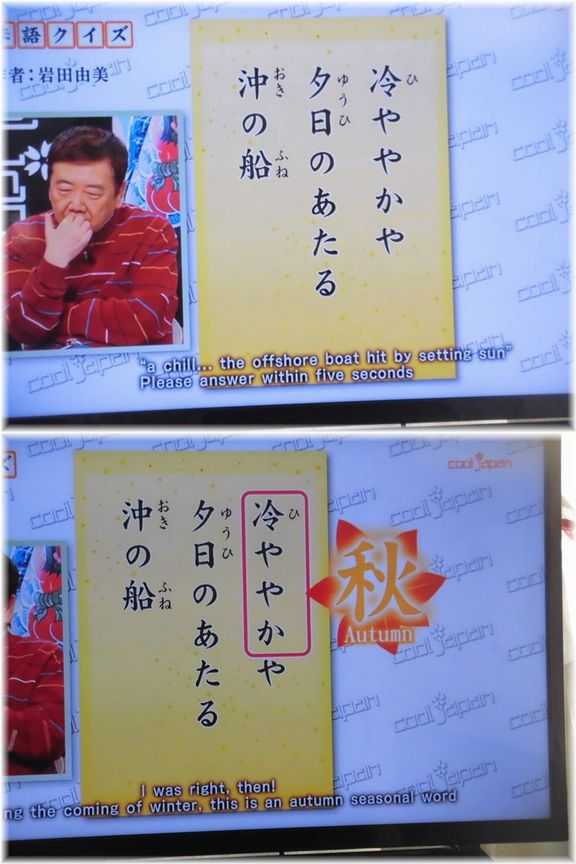 語クイズ
者：岩田由美
冷ややかや
ひ
夕日のあたる
ゆうひ
沖の船
おき
ふね
"a chill... the offshore boat hit by setting sun"
Please answer within five seconds
cool japan
冷ややかや
ひ
夕日のあたる
ゆうひ
沖の船
おき
ふね
秋
Autumn
I was right, then!
ng the coming of winter, this is an autumn seasonal word